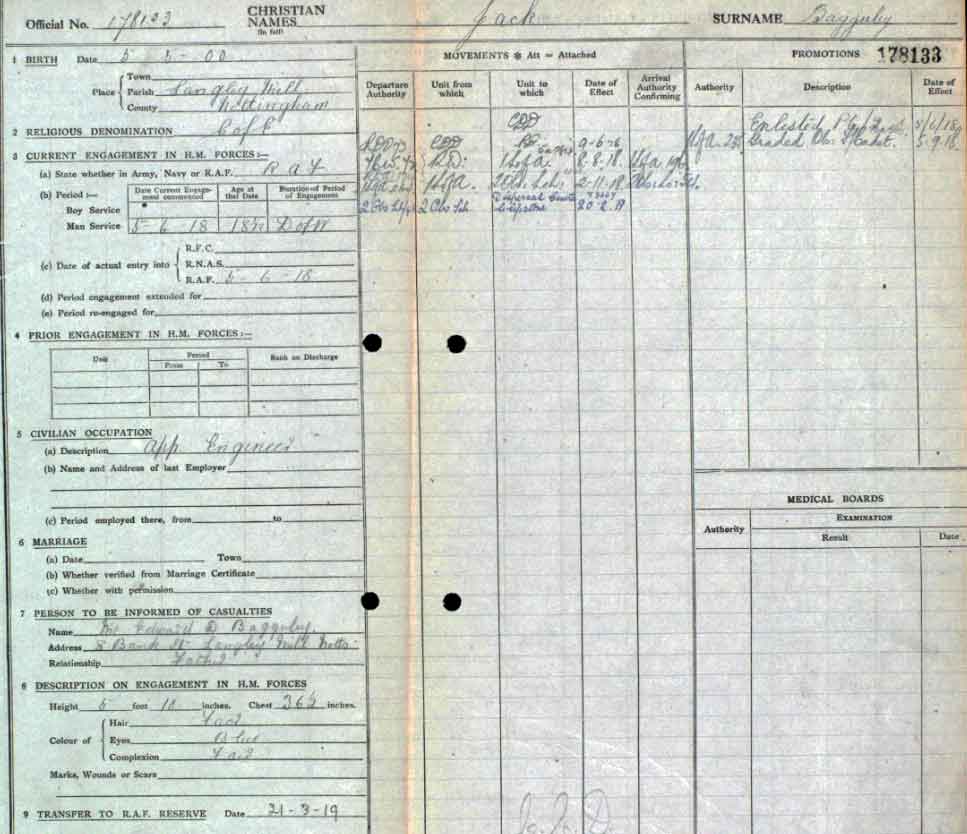 Official No. 178133 CHRISTIAN NAMES (in full) Jack SURNAME Bagguley
1 BIRTH Date 5 5-00
Place Town
Parish Langley Mill
County Nottingham
2 RELIGIOUS DENOMINATION C of E
3 CURRENT ENGAGEMENT IN H.M. FORCES:—
(a) State whether in Army, Navy or R.A.F. R A F
(b) Period :— Date Current Engagement commenced Age at that Date Duration of Period of Engagement
Boy Service
Man Service 5-6-18 18 1/12 D of W
(c) Date of actual entry into R.F.C.
R.N.A.S.
R.A.F. 5-6-18
(d) Period engagement extended for
(e) Period re-engaged for
4 PRIOR ENGAGEMENT IN H.M. FORCES:—
Unit Period Rank on Discharge
From To
5 CIVILIAN OCCUPATION
(a) Description App Engineer
(b) Name and Address of last Employer
(c) Period employed there, from to
6 MARRIAGE
(a) Date Town
(b) Whether verified from Marriage Certificate
(c) Whether with permission
7 PERSON TO BE INFORMED OF CASUALTIES
Name Mr Edward D Bagguley
Address 8 Bank St Langley Mill Notts
Relationship Father
8 DESCRIPTION ON ENGAGEMENT IN H.M. FORCES
Height 5 feet 10 inches. Chest 36½ inches.
Colour of Hair Fair
Eyes Blue
Complexion Fair
Marks, Wounds or Scars
9 TRANSFER TO R.A.F. RESERVE Date 21-3-19
MOVEMENTS * Att = Attached
Departure Authority Unit from which Unit to which Date of Effect Arrival Authority Confirming
8-8-18
2-11-18
2 Obs Sch 20-2-19
PROMOTIONS 178133
Authority Description Date of Effect
Enlisted 5/6/18
Graded Cadet. 5-9-18
MEDICAL BOARDS
Authority EXAMINATION
Result Date